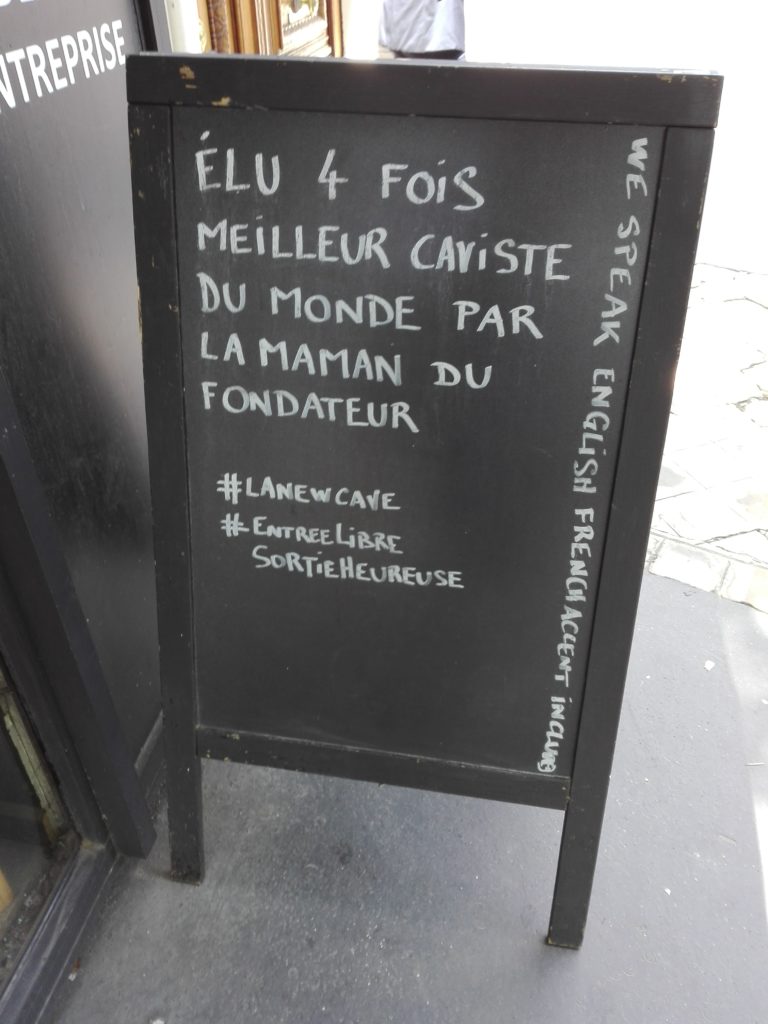 NTREPRISE
ÉLU 4 FOIS
MEILLEUR CAVISTE
DU MONDE PAR
LA MAMAN DU
FONDATEUR
#LANEWCAVE
#ENTREELIBRE
SORTIEHEUREUSE
WE SPEAK ENGLISH FRENCH ACCENT INCLUDED